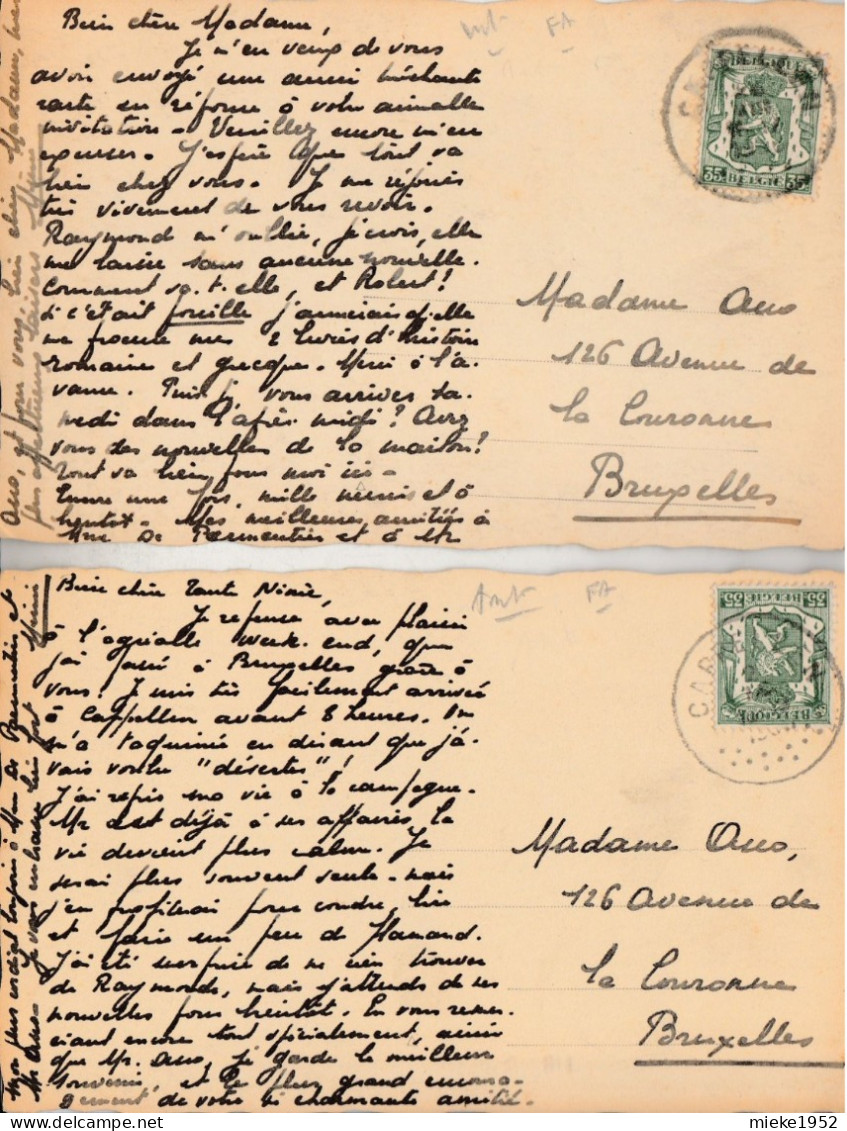 Bien chère Madame,
Je m'en veux de vous
avoir envoyé une aussi méchante
carte en réponse à votre aimable
invitation - Veuillez encore m'en
excuser. J'espère que tout va
bien chez vous. Je me réjouis
très vivement de vous revoir.
Raymond m'oublie, je crois, elle
me laisse sans aucune nouvelle.
Comment va-t-elle, et Robert!
Si c'était possible j'aimerais qu'elle
me procure mes 2 livres d'histoire
romaine et grecque. Merci à l'a-
vance. Puis-je vous arriver sa-
medi dans l'après-midi? Avez
vous des nouvelles de la maison?
Tout va bien pour moi ici -
Encore une fois, mille mercis et à
bientôt - Mes meilleures amitiés à
Mme De Parmentier et à Mr
Ouo, et pour vous, bien chère Madame, mes
plus affectueux baisers
FA
BELGIQUE
35 BELGIE 35
Madame Ouo
126 Avenue de
la Couronne
Bruxelles
Bien chère Tante Ninie,
Je repense avec plaisir
à l'agréable week-end, que
j'ai passé à Bruxelles grâce à
vous! Je suis très facilement arrivée
à Cappellen avant 8 heures. On
m'a taquinée en disant que j'a-
vais voulu "déserter"!
J'ai repris ma vie à la campagne.
Mr est déjà à ses affaires, la
vie devient plus calme. Je
serai plus souvent seule - mais
j'en profiterai pour coudre, lire
et faire un peu de flamand.
J'ai été surprise de ne rien trouver
de Raymonde, mais j'attends de ses
nouvelles pour bientôt. En vous remer-
ciant encore tout spécialement, ainsi
que Mr. Ouo, je garde le meilleur
souvenir, et le plus grand encoura-
gement de votre si charmante amitié.
Mon plus cordial bonjour à Mme De Parmentier et
Mr Ouo - Je vous embrasse bien fort
FA
BELGIE
35 35
BELGIQUE
Madame Ouo,
126 Avenue de
la Couronne
Bruxelles
mieke1952